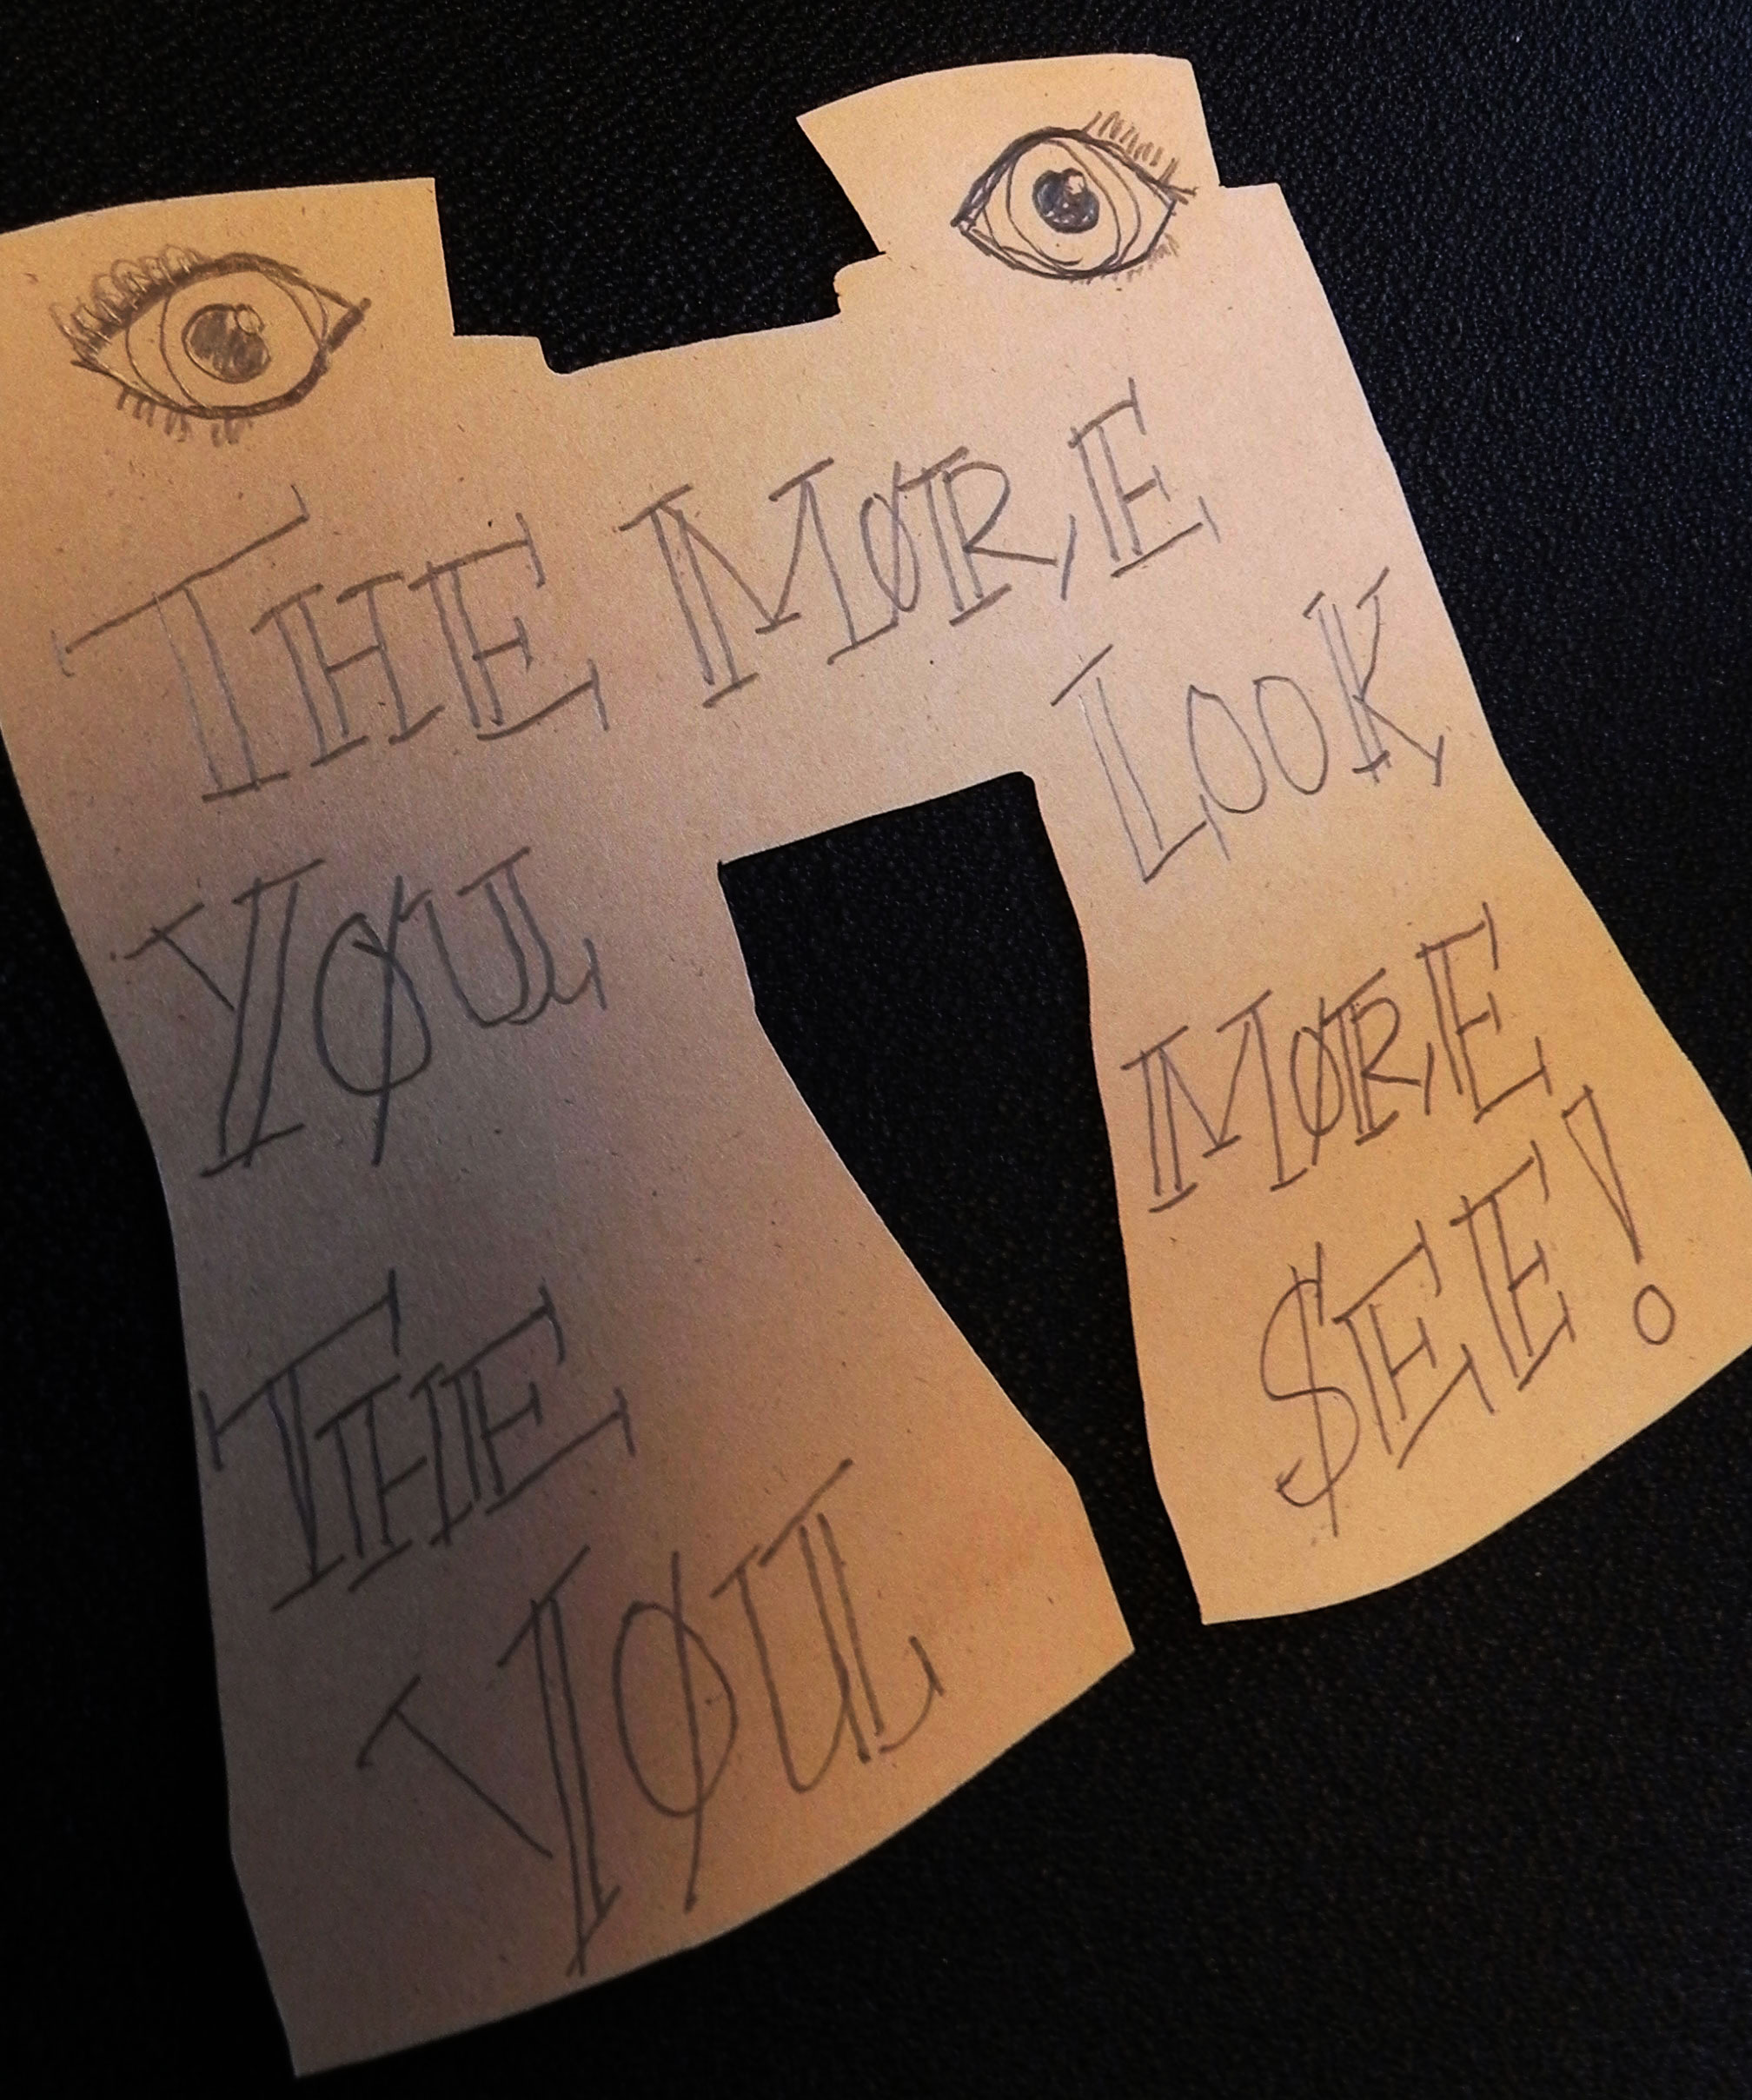 THE MØRE
YØU LOOK
THE MØRE
YØU $EE!